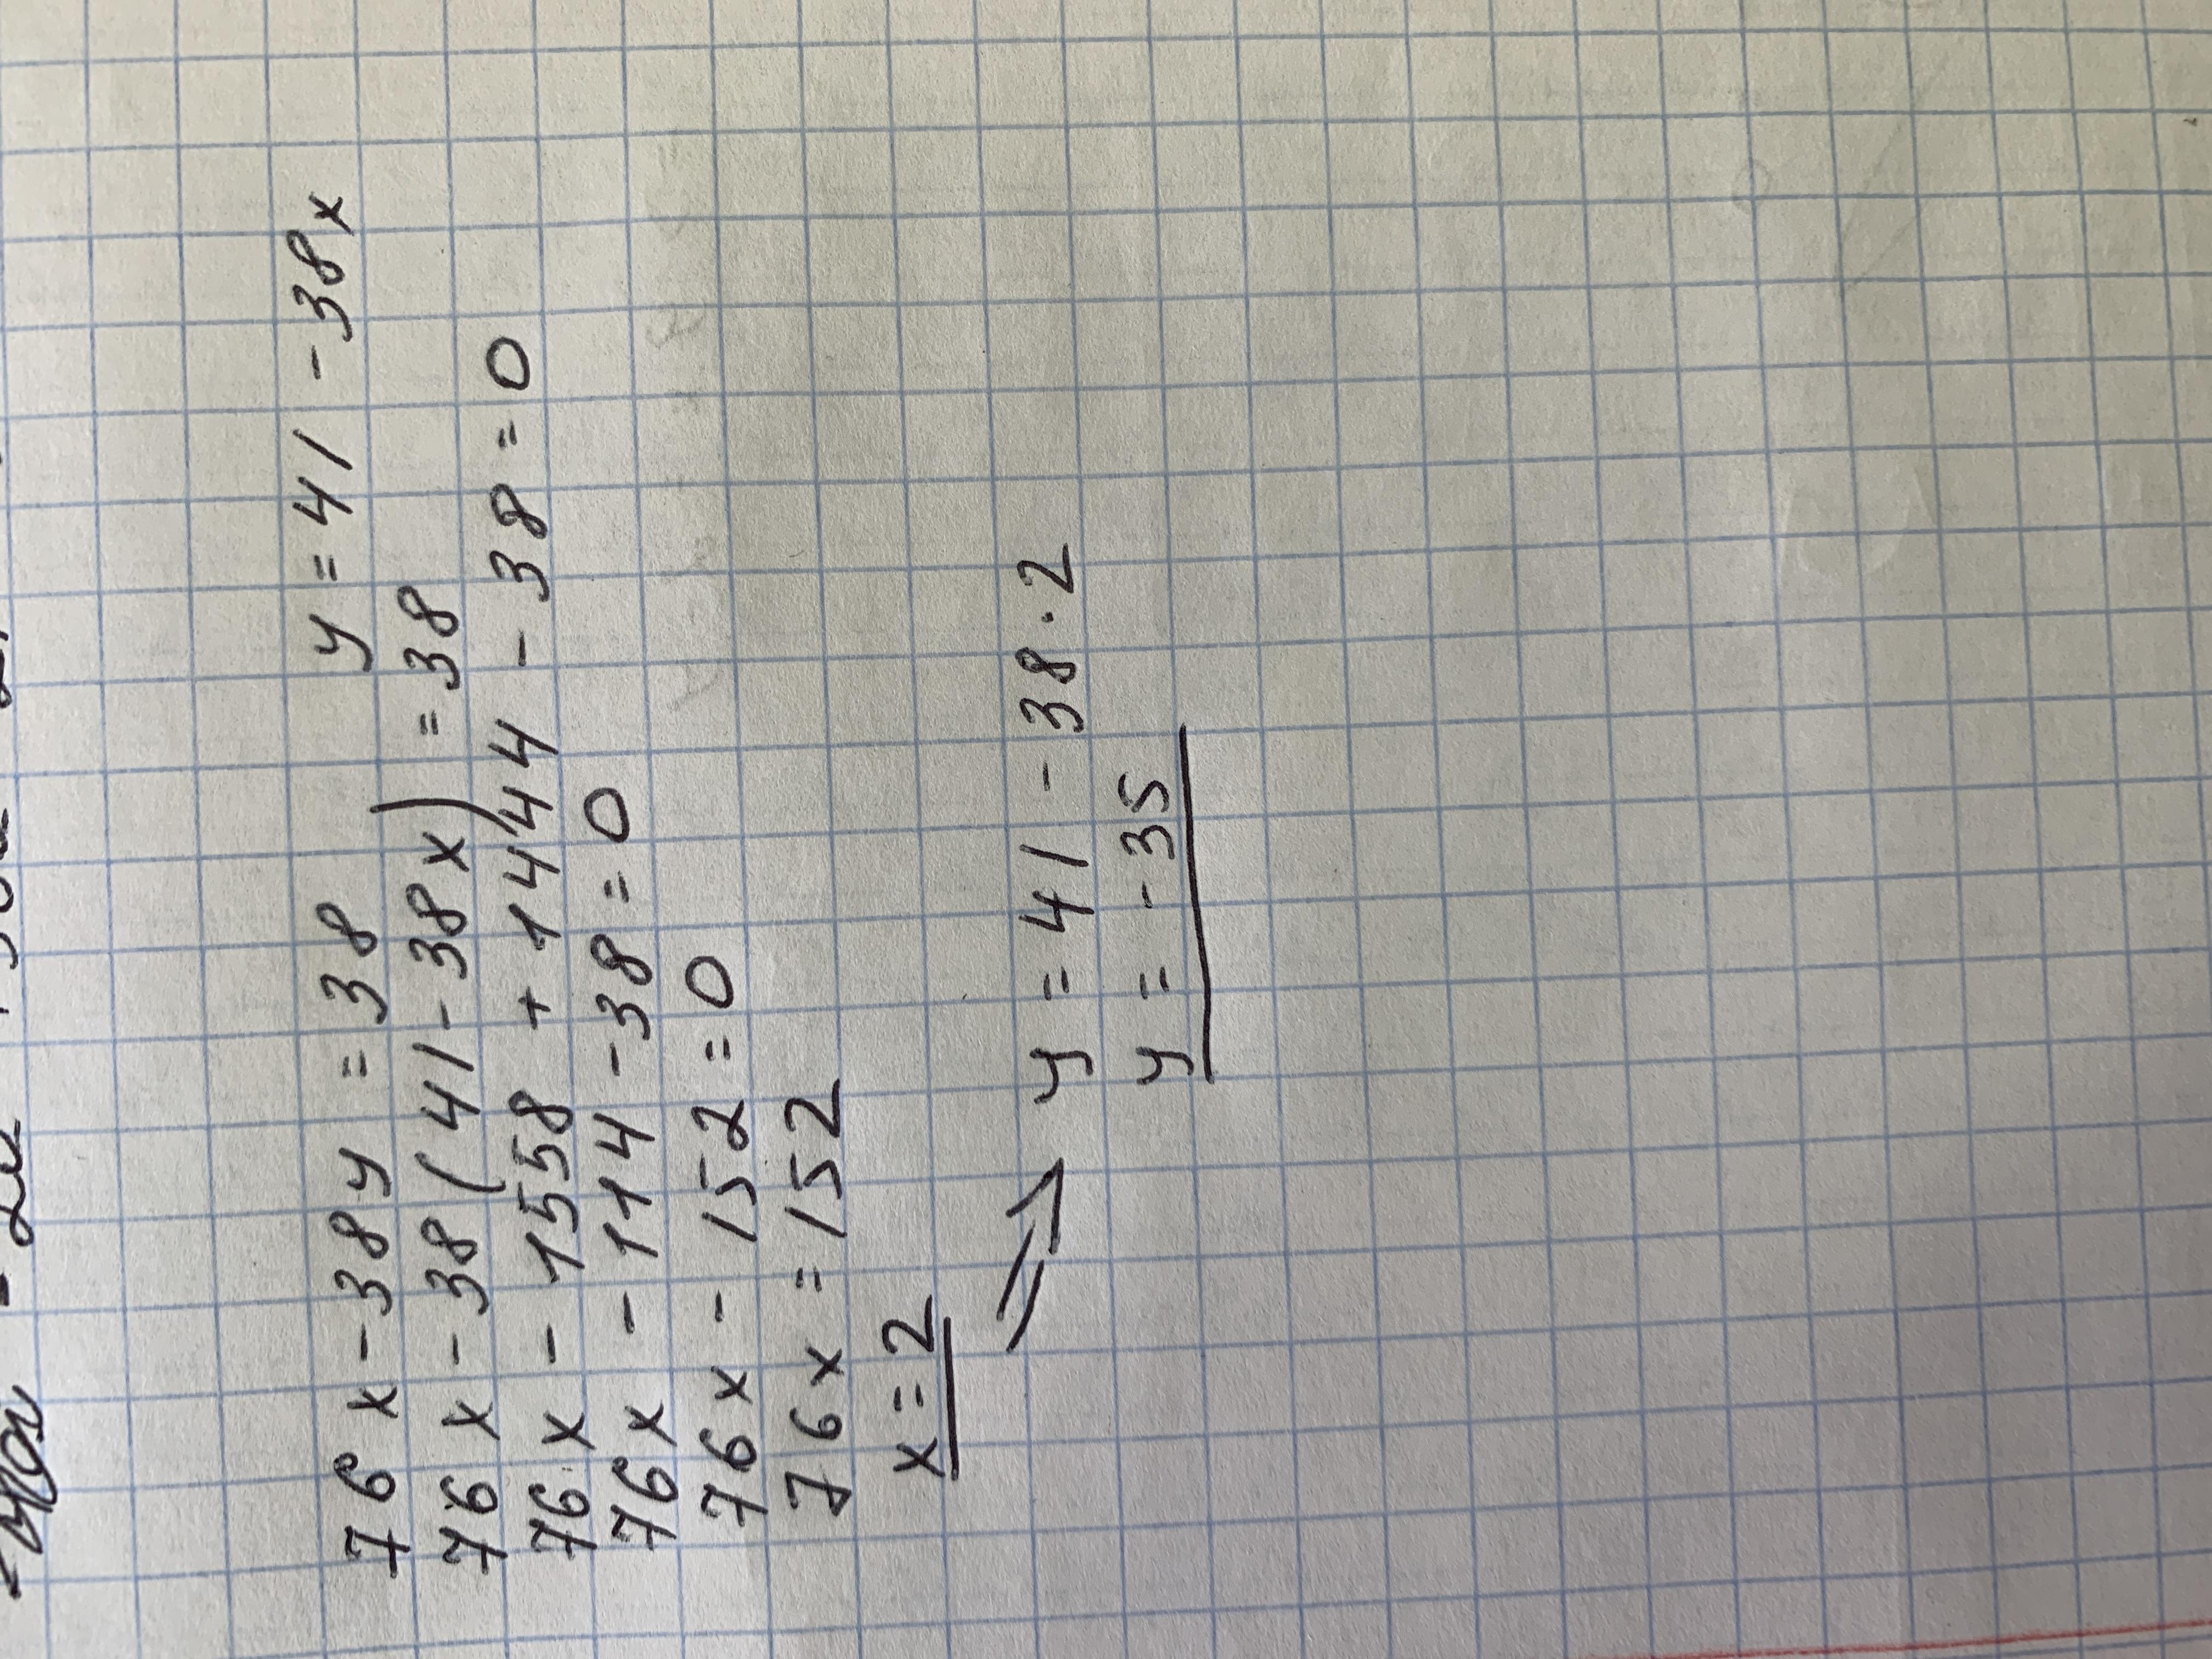 76x - 38y = 38 y = 41 - 38x
76x - 38(41 - 38x) = 38
76x - 1558 + 1444 - 38 = 0
76x - 114 - 38 = 0
76x - 152 = 0
76x = 152
x = 2
⇒ y = 41 - 38 · 2
y = - 35